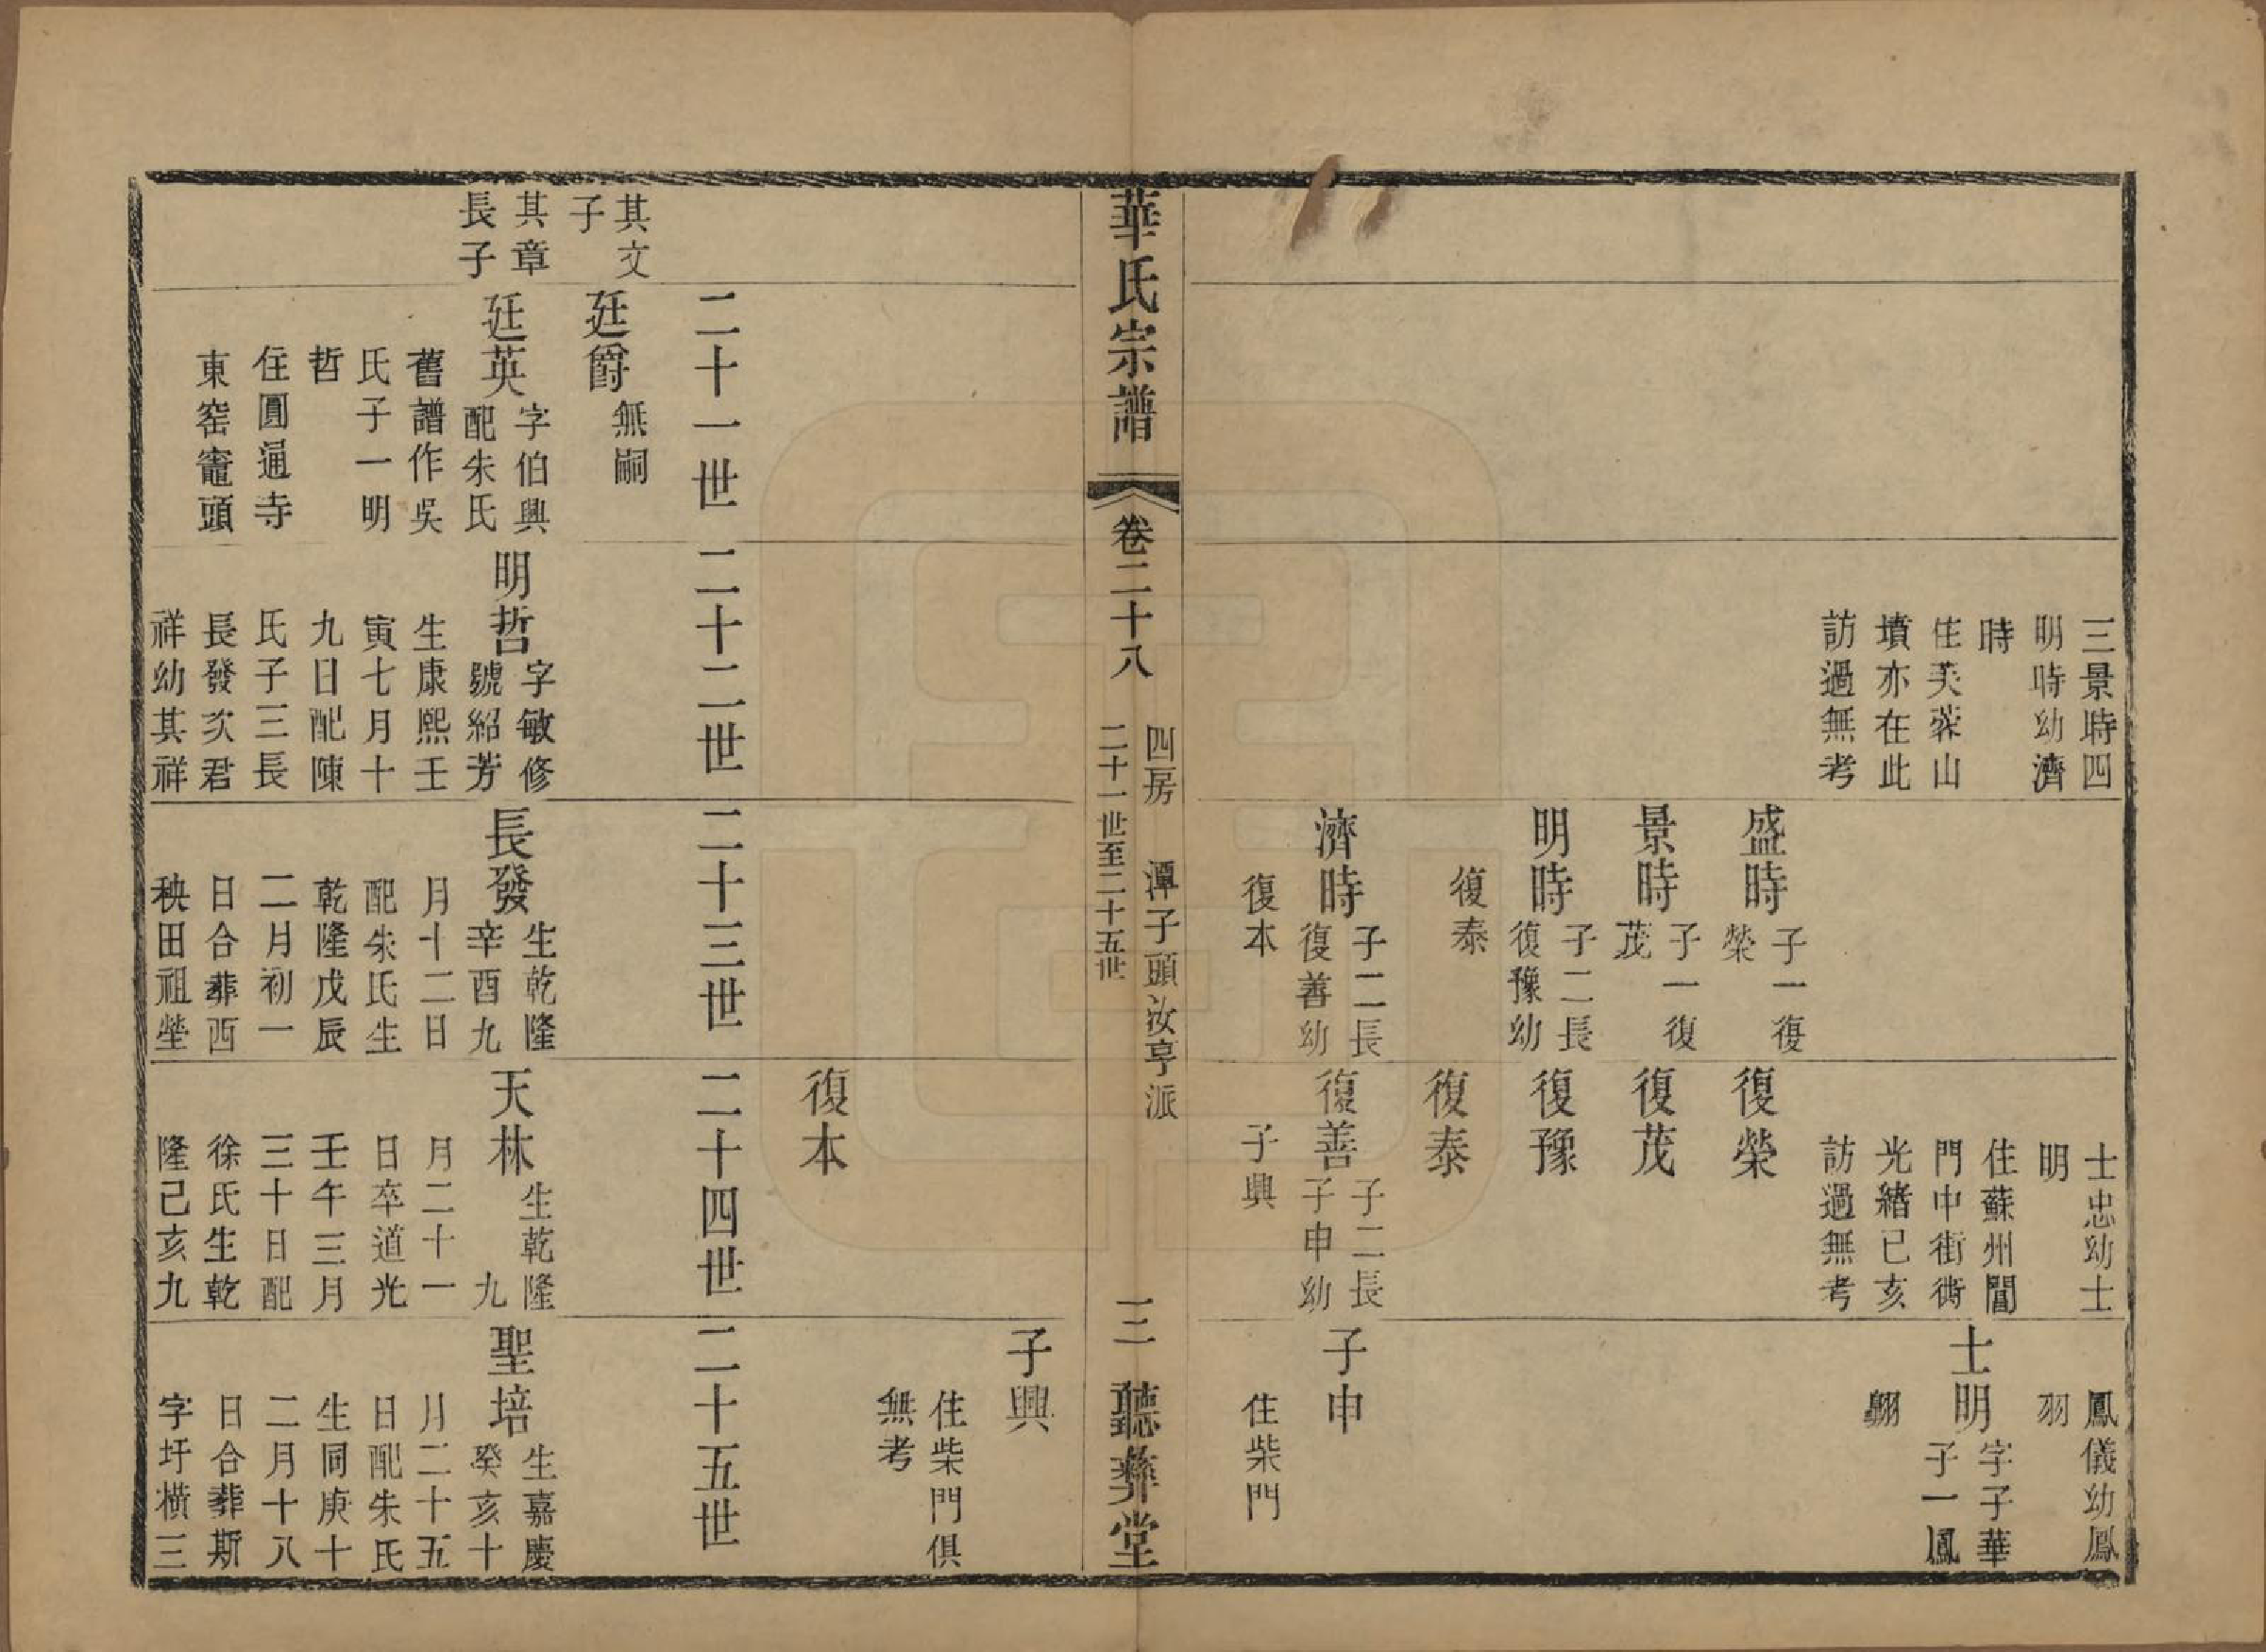 三景時四
明時幼濟
時
住芙蓉山
墳亦在此
訪過無考
盛時
子一復
榮
景時
子一復
茂
明時
子二長
復豫幼
復泰
濟時
子二長
復善幼
復本
士忠幼士
明
住蘇州閶
門中街衖
光緒己亥
訪過無考
復榮
復茂
復豫
復泰
復善
子二長
子申幼
子興
鳳儀幼鳳
羽
士明
字子華
子一鳳
翱
子申
住柴門
華氏宗譜
卷二十八
四房 潭子頭汝亨派
二十一世至二十五世
三
聽彝堂
復本
子興
住柴門俱
無考
二十一世
二十二世
二十三世
二十四世
二十五世
其文
子
其章
長子
廷爵
無嗣
廷英
字伯興
配朱氏
舊譜作吳
氏子一明
哲
住圓通寺
東窑竈頭
明哲
字敏修
號紹芳
生康熙壬
寅七月十
九日配陳
氏子三長
長發次君
祥幼其祥
長發
生乾隆
辛酉九
月十二日
配朱氏生
乾隆戊辰
二月初一
日合葬西
秧田祖塋
天林
生乾隆
九
月二十一
日卒道光
壬午三月
三十日配
徐氏生乾
隆己亥九
聖培
生嘉慶
癸亥十
月二十五
日配朱氏
生同庚十
二月十八
日合葬斯
字圩橫三